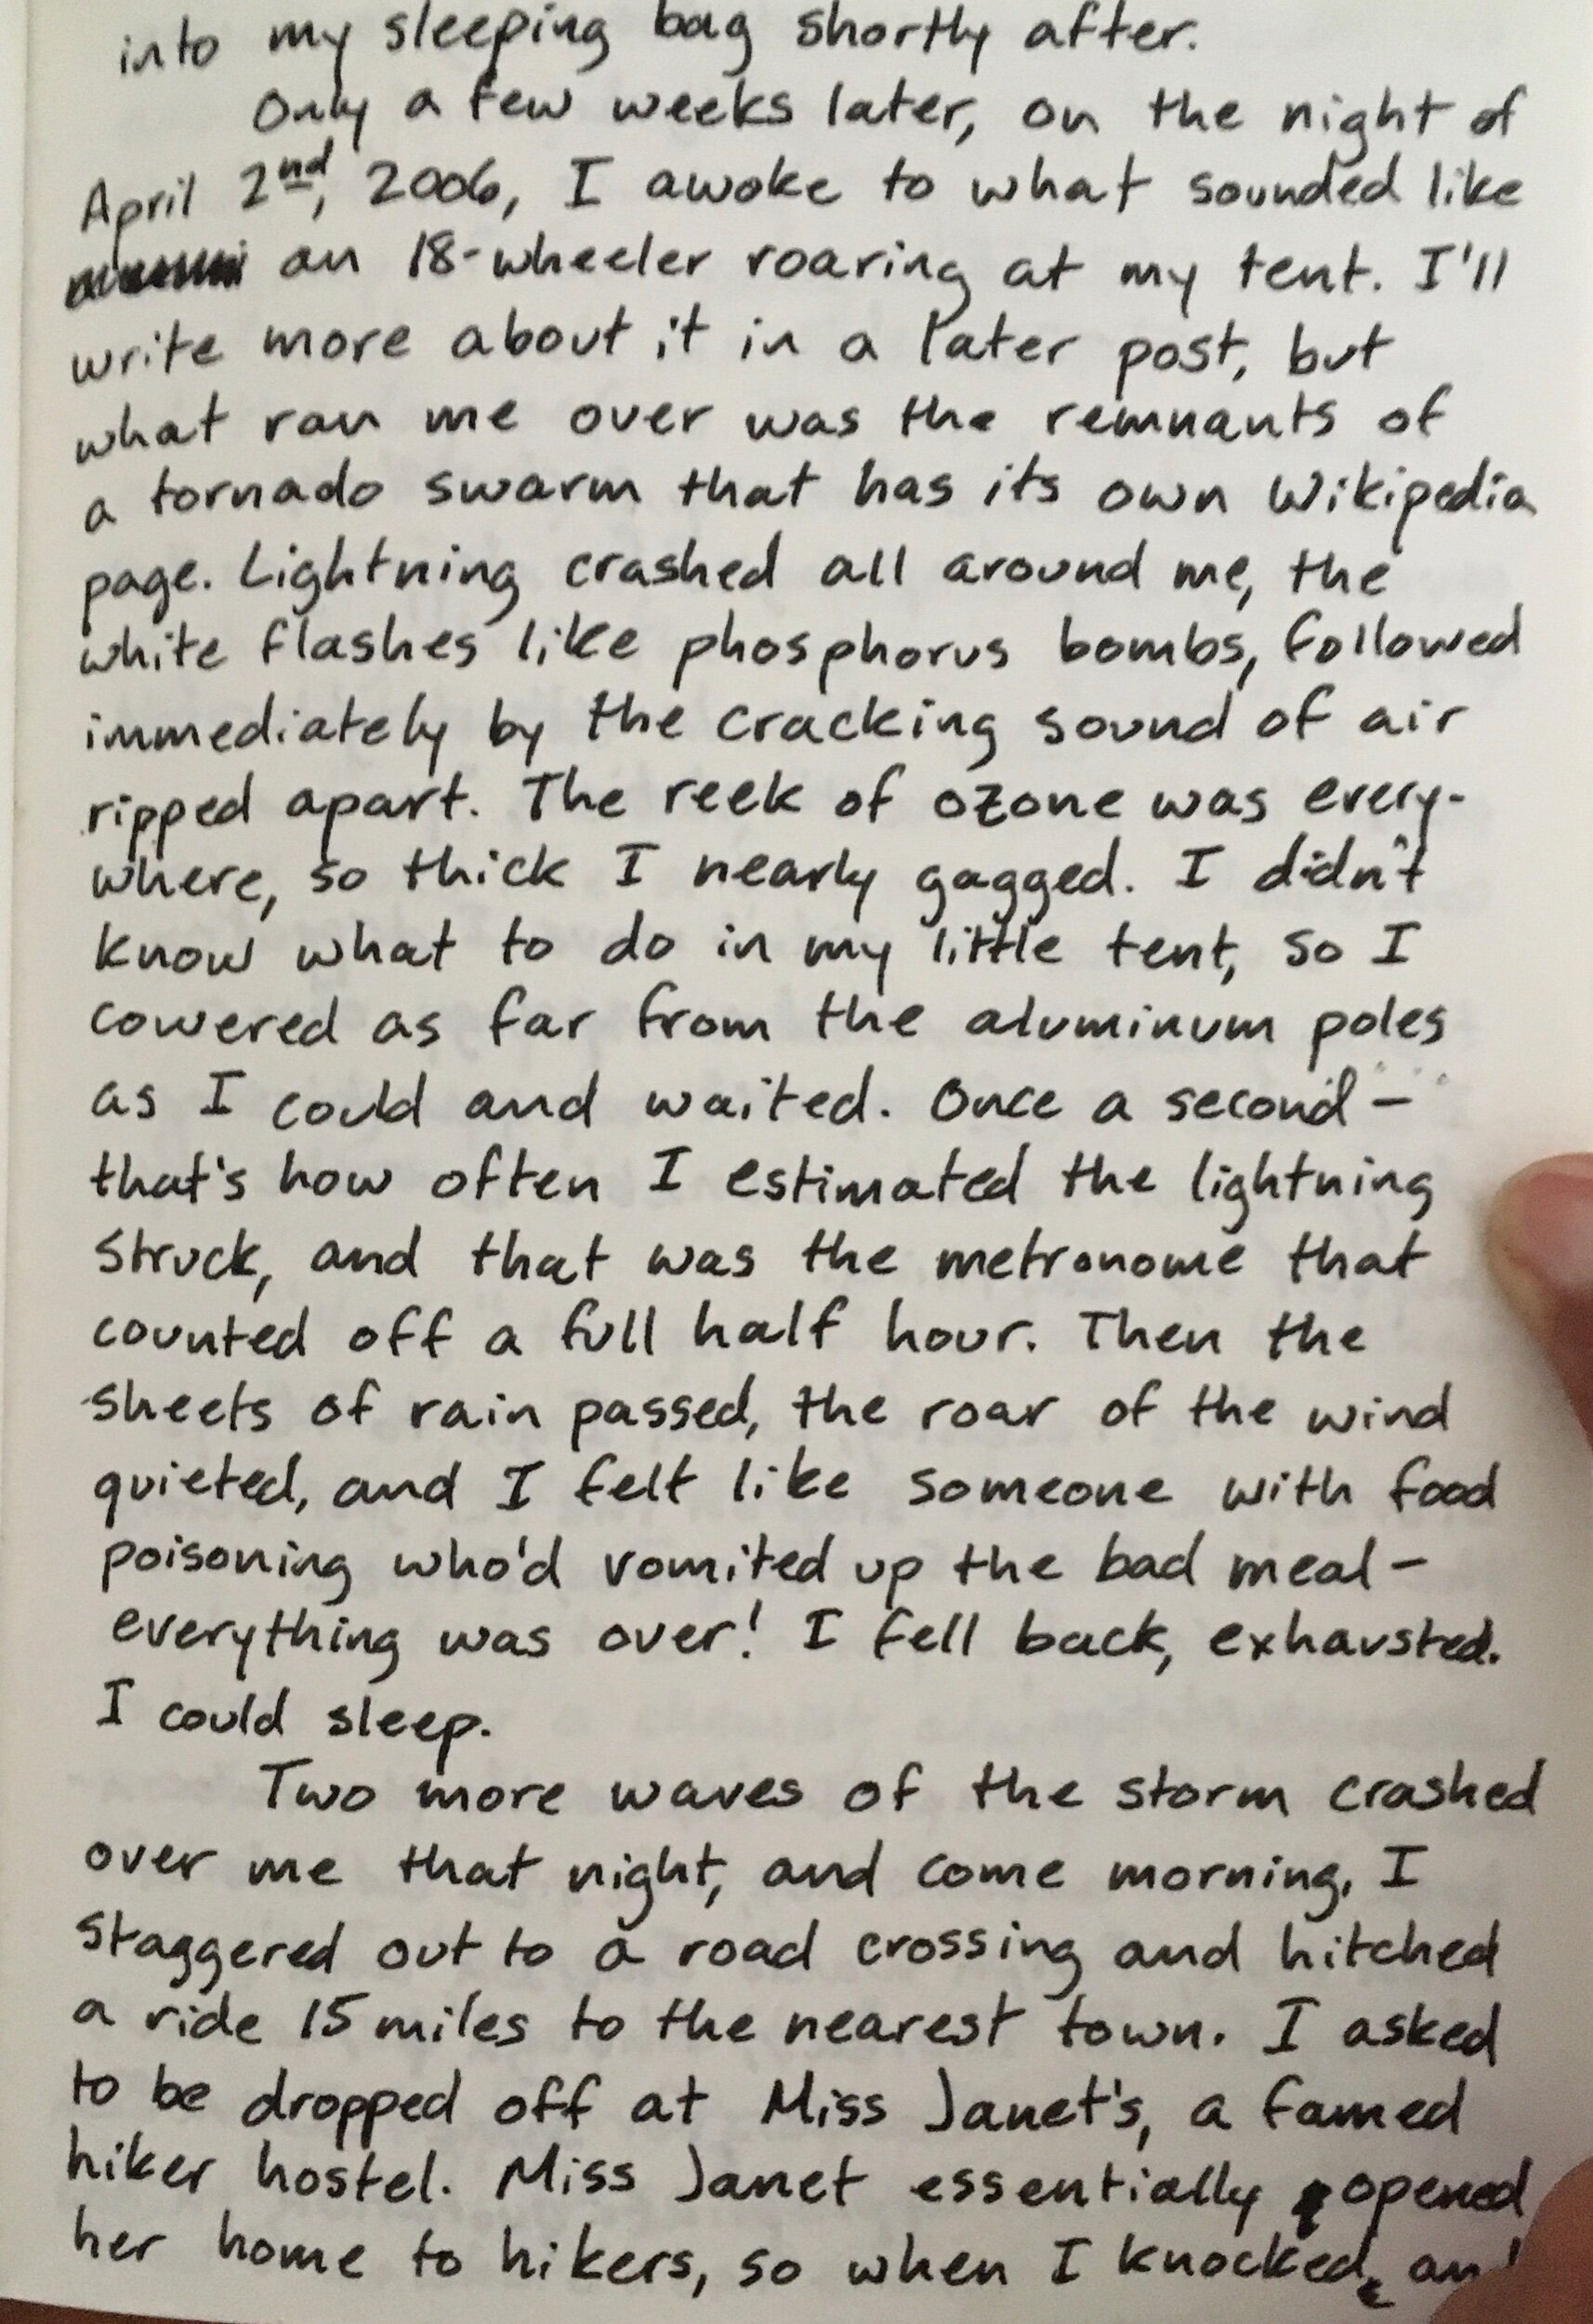 into my sleeping bag shortly after.
Only a few weeks later, on the night of
April 2nd, 2006, I awoke to what sounded like
an 18-wheeler roaring at my tent. I'll
write more about it in a later post, but
what ran me over was the remnants of
a tornado swarm that has its own Wikipedia
page. Lightning crashed all around me, the
white flashes like phosphorus bombs, followed
immediately by the cracking sound of air
ripped apart. The reek of ozone was every-
where, so thick I nearly gagged. I didn't
know what to do in my little tent, so I
cowered as far from the aluminum poles
as I could and waited. Once a second -
that's how often I estimated the lightning
struck, and that was the metronome that
counted off a full half hour. Then the
sheets of rain passed, the roar of the wind
quieted, and I felt like someone with food
poisoning who'd vomited up the bad meal -
everything was over! I fell back, exhausted.
I could sleep.
Two more waves of the storm crashed
over me that night, and come morning, I
staggered out to a road crossing and hitched
a ride 15 miles to the nearest town. I asked
to be dropped off at Miss Janet's, a famed
hiker hostel. Miss Janet essentially opened
her home to hikers, so when I knocked,